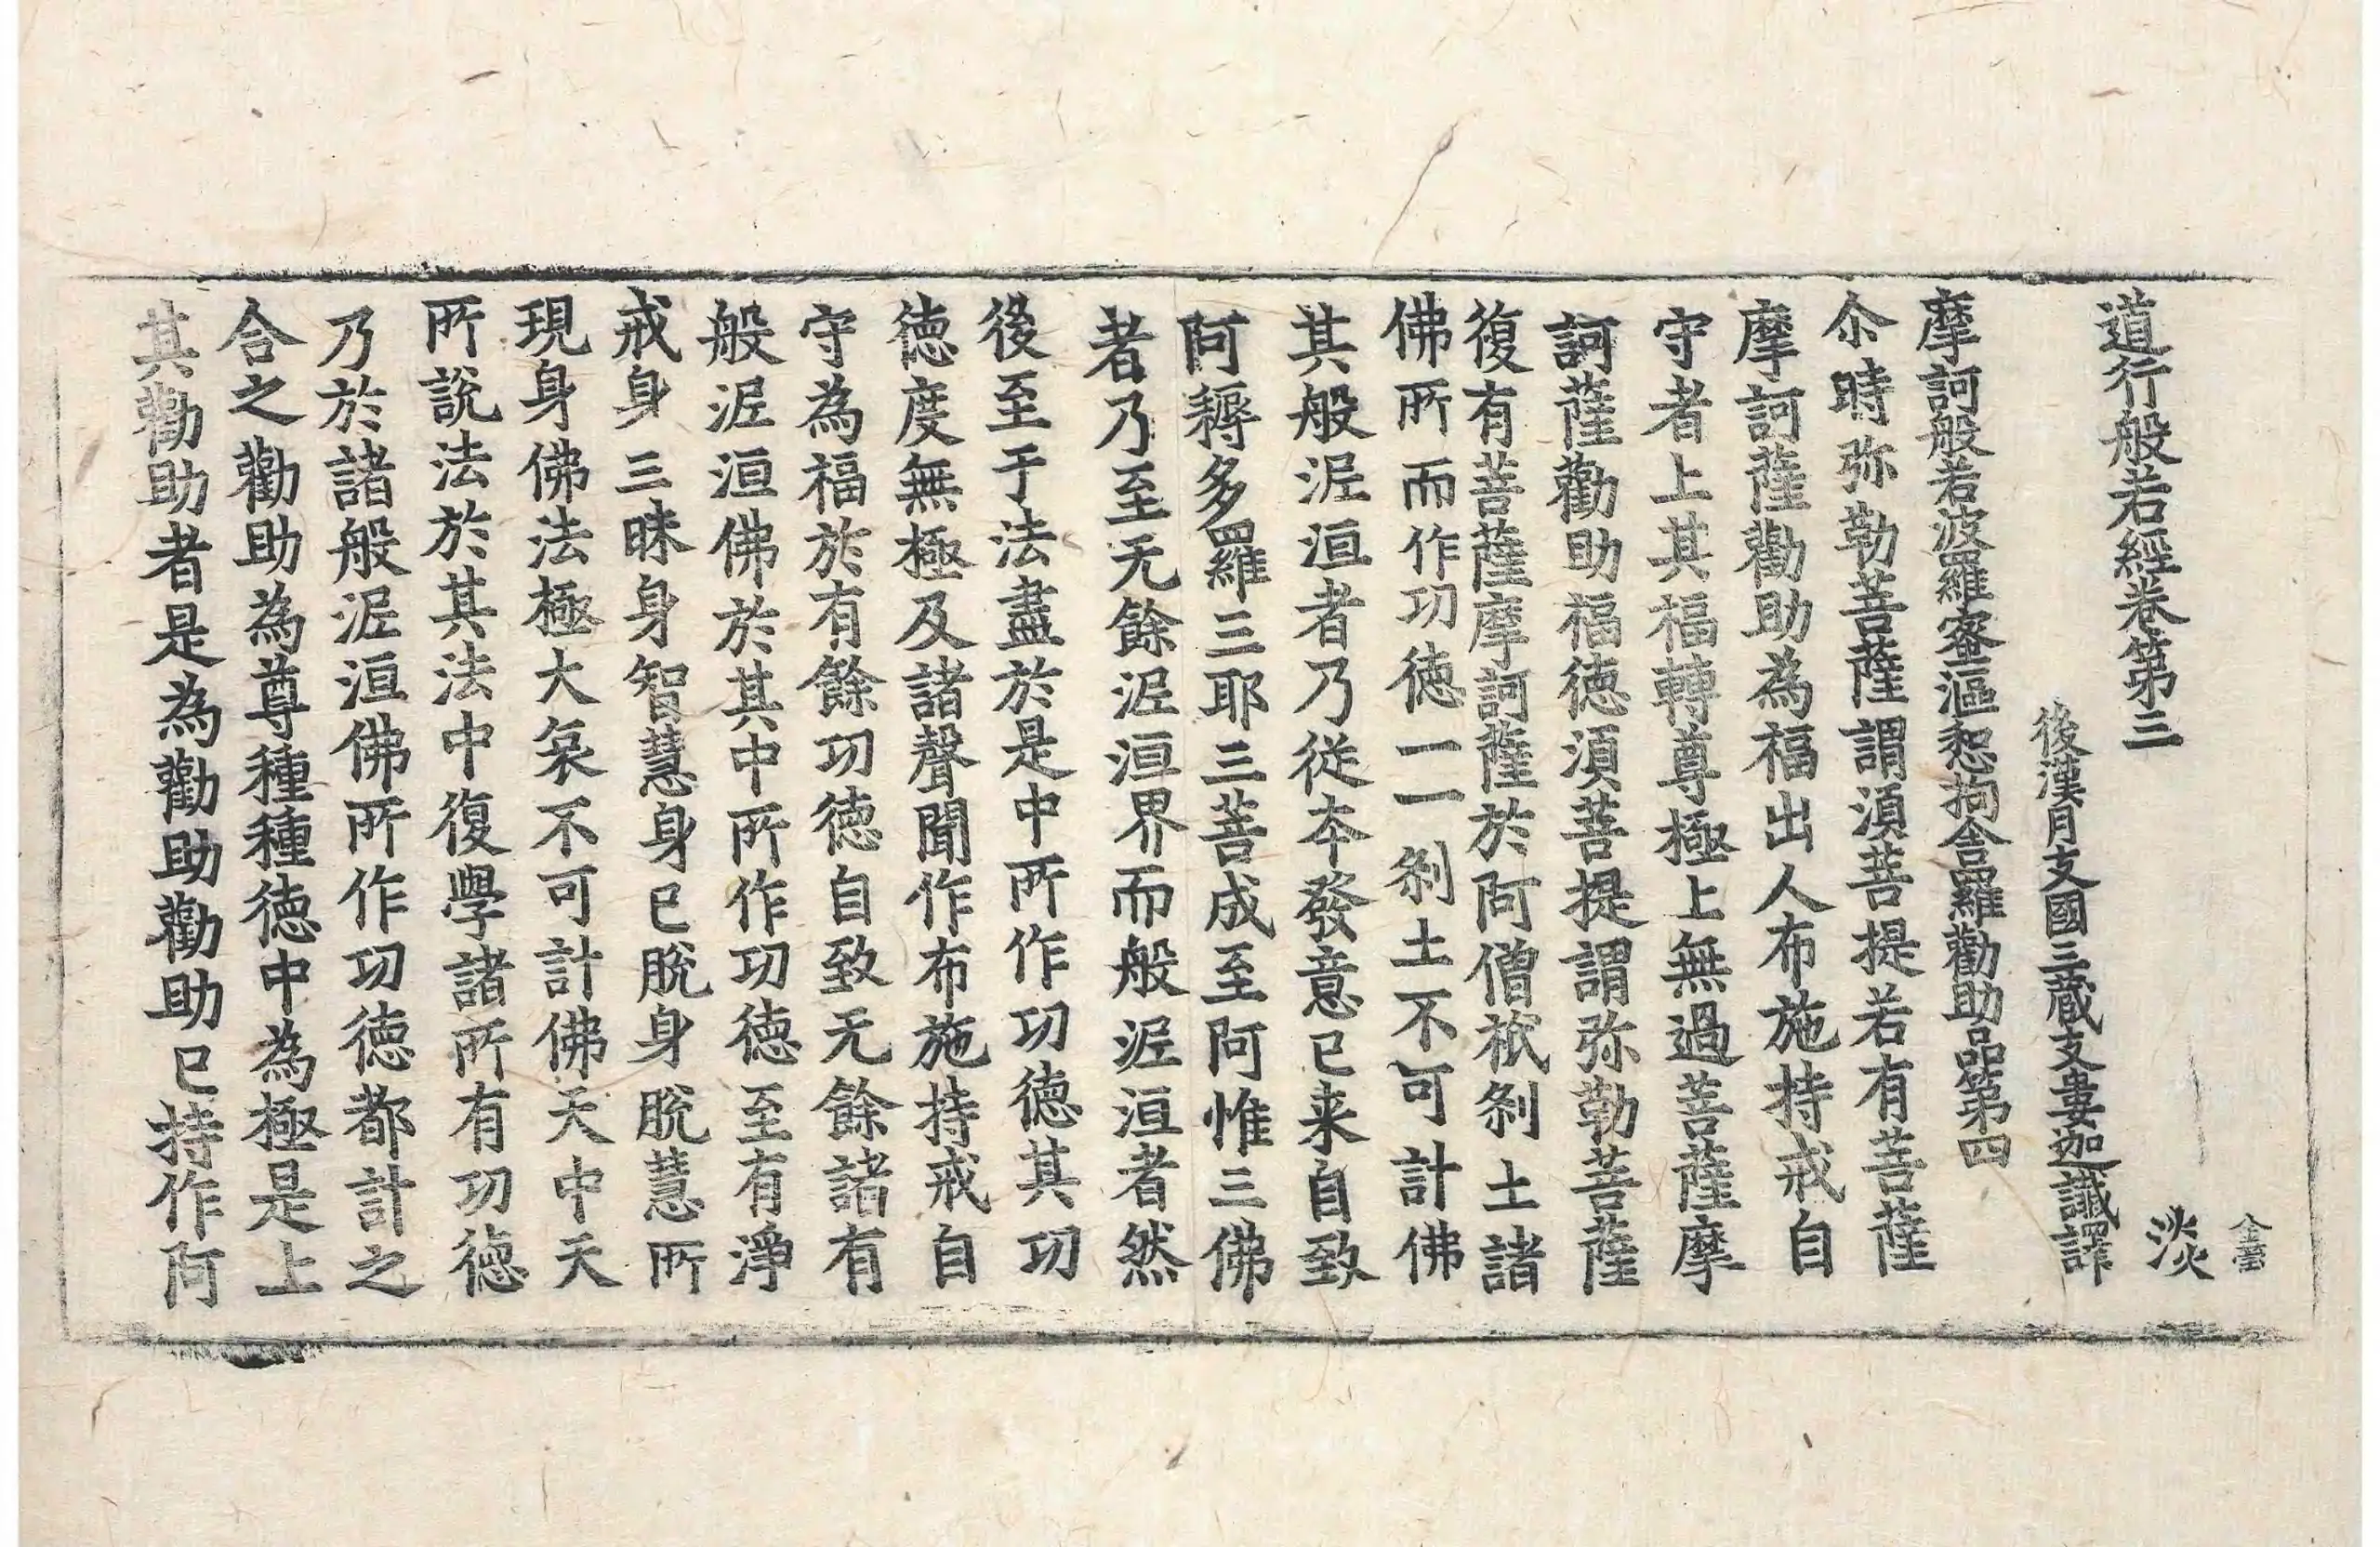 道行般若經卷第三
淡
後漢月支國三藏支婁迦讖譯
摩訶般若波羅蜜漚惒拘舍羅勸助品第四
尒時弥勒菩薩謂湏菩提若有菩薩
摩訶薩勸助為福出人布施持戒自
守者上其福轉尊極上無過菩薩摩
訶薩勸助福德湏菩提謂弥勒菩薩
復有菩薩摩訶薩於阿僧祇剎土諸
佛所而作功德一一剎土不可計佛
其般泥洹者乃從夲發意已来自致
阿耨多羅三耶三菩成至阿惟三佛
者乃至无餘泥洹界而般泥洹者然
後至于法盡於是中所作功德其功
德度無極及諸聲聞作布施持戒自
守為福於有餘功德自致无餘諸有
般泥洹佛於其中所作功德至有淨
戒身三昧身智慧身已脫身脫慧所
現身佛法極大哀不可計佛天中天
所說法於其法中復學諸所有功德
乃於諸般泥洹佛所作功德都計之
合之勸助為尊種種德中為極是上
其勸助者是為勸助勸助已持作阿